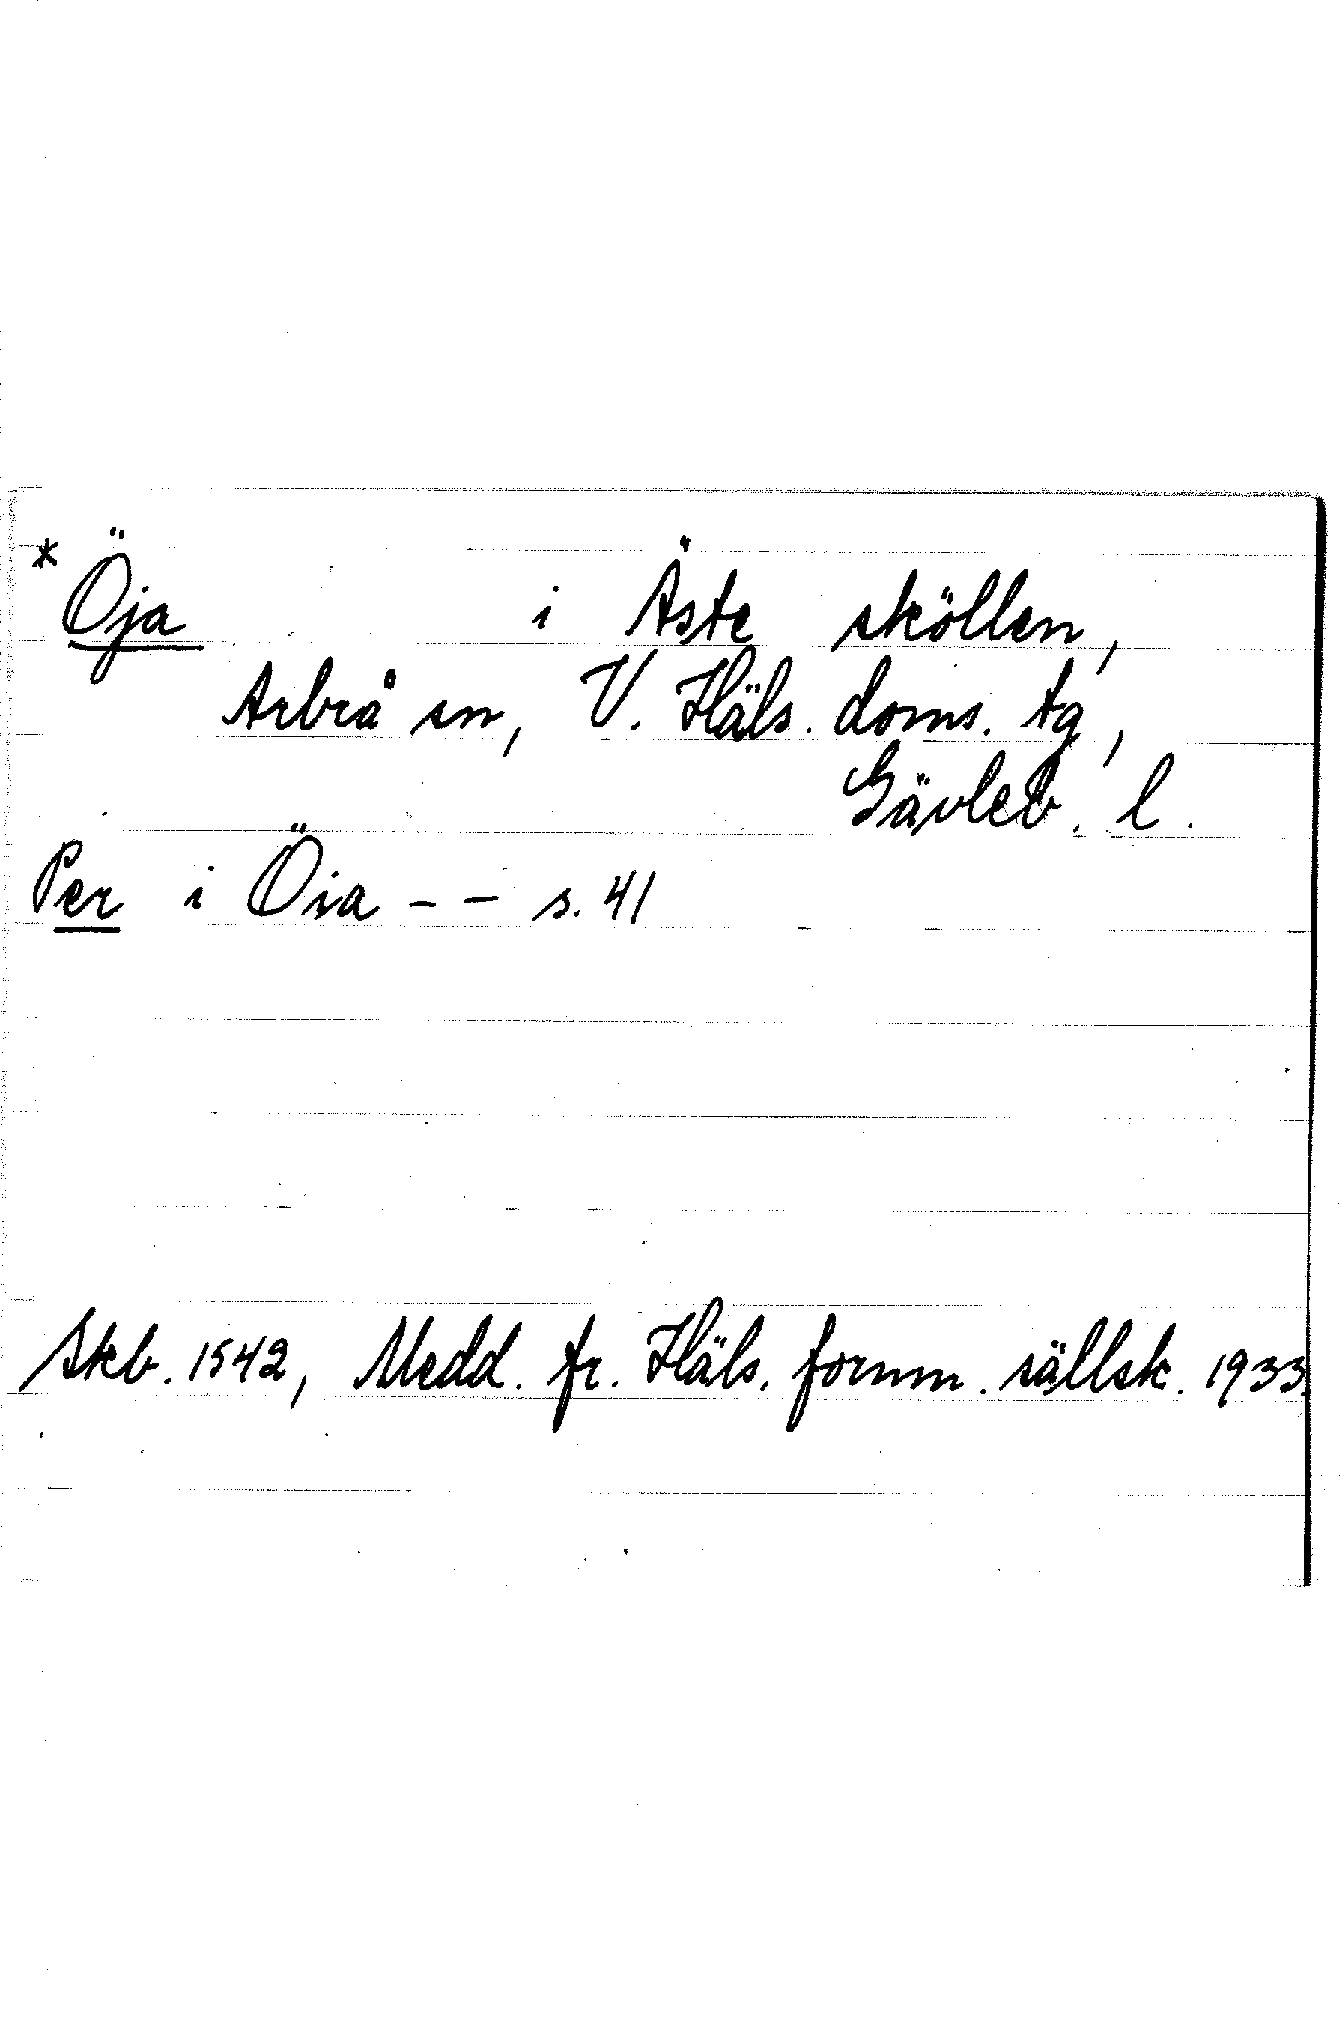 * Öja i Äste sköllen,
Arbrå sn, V. Häls. doms. tg,
Gävleb. l.
Per i Öia - - s. 41
Skb. 1542, Medd. fr. Häls. fornm. sällsk. 1933.